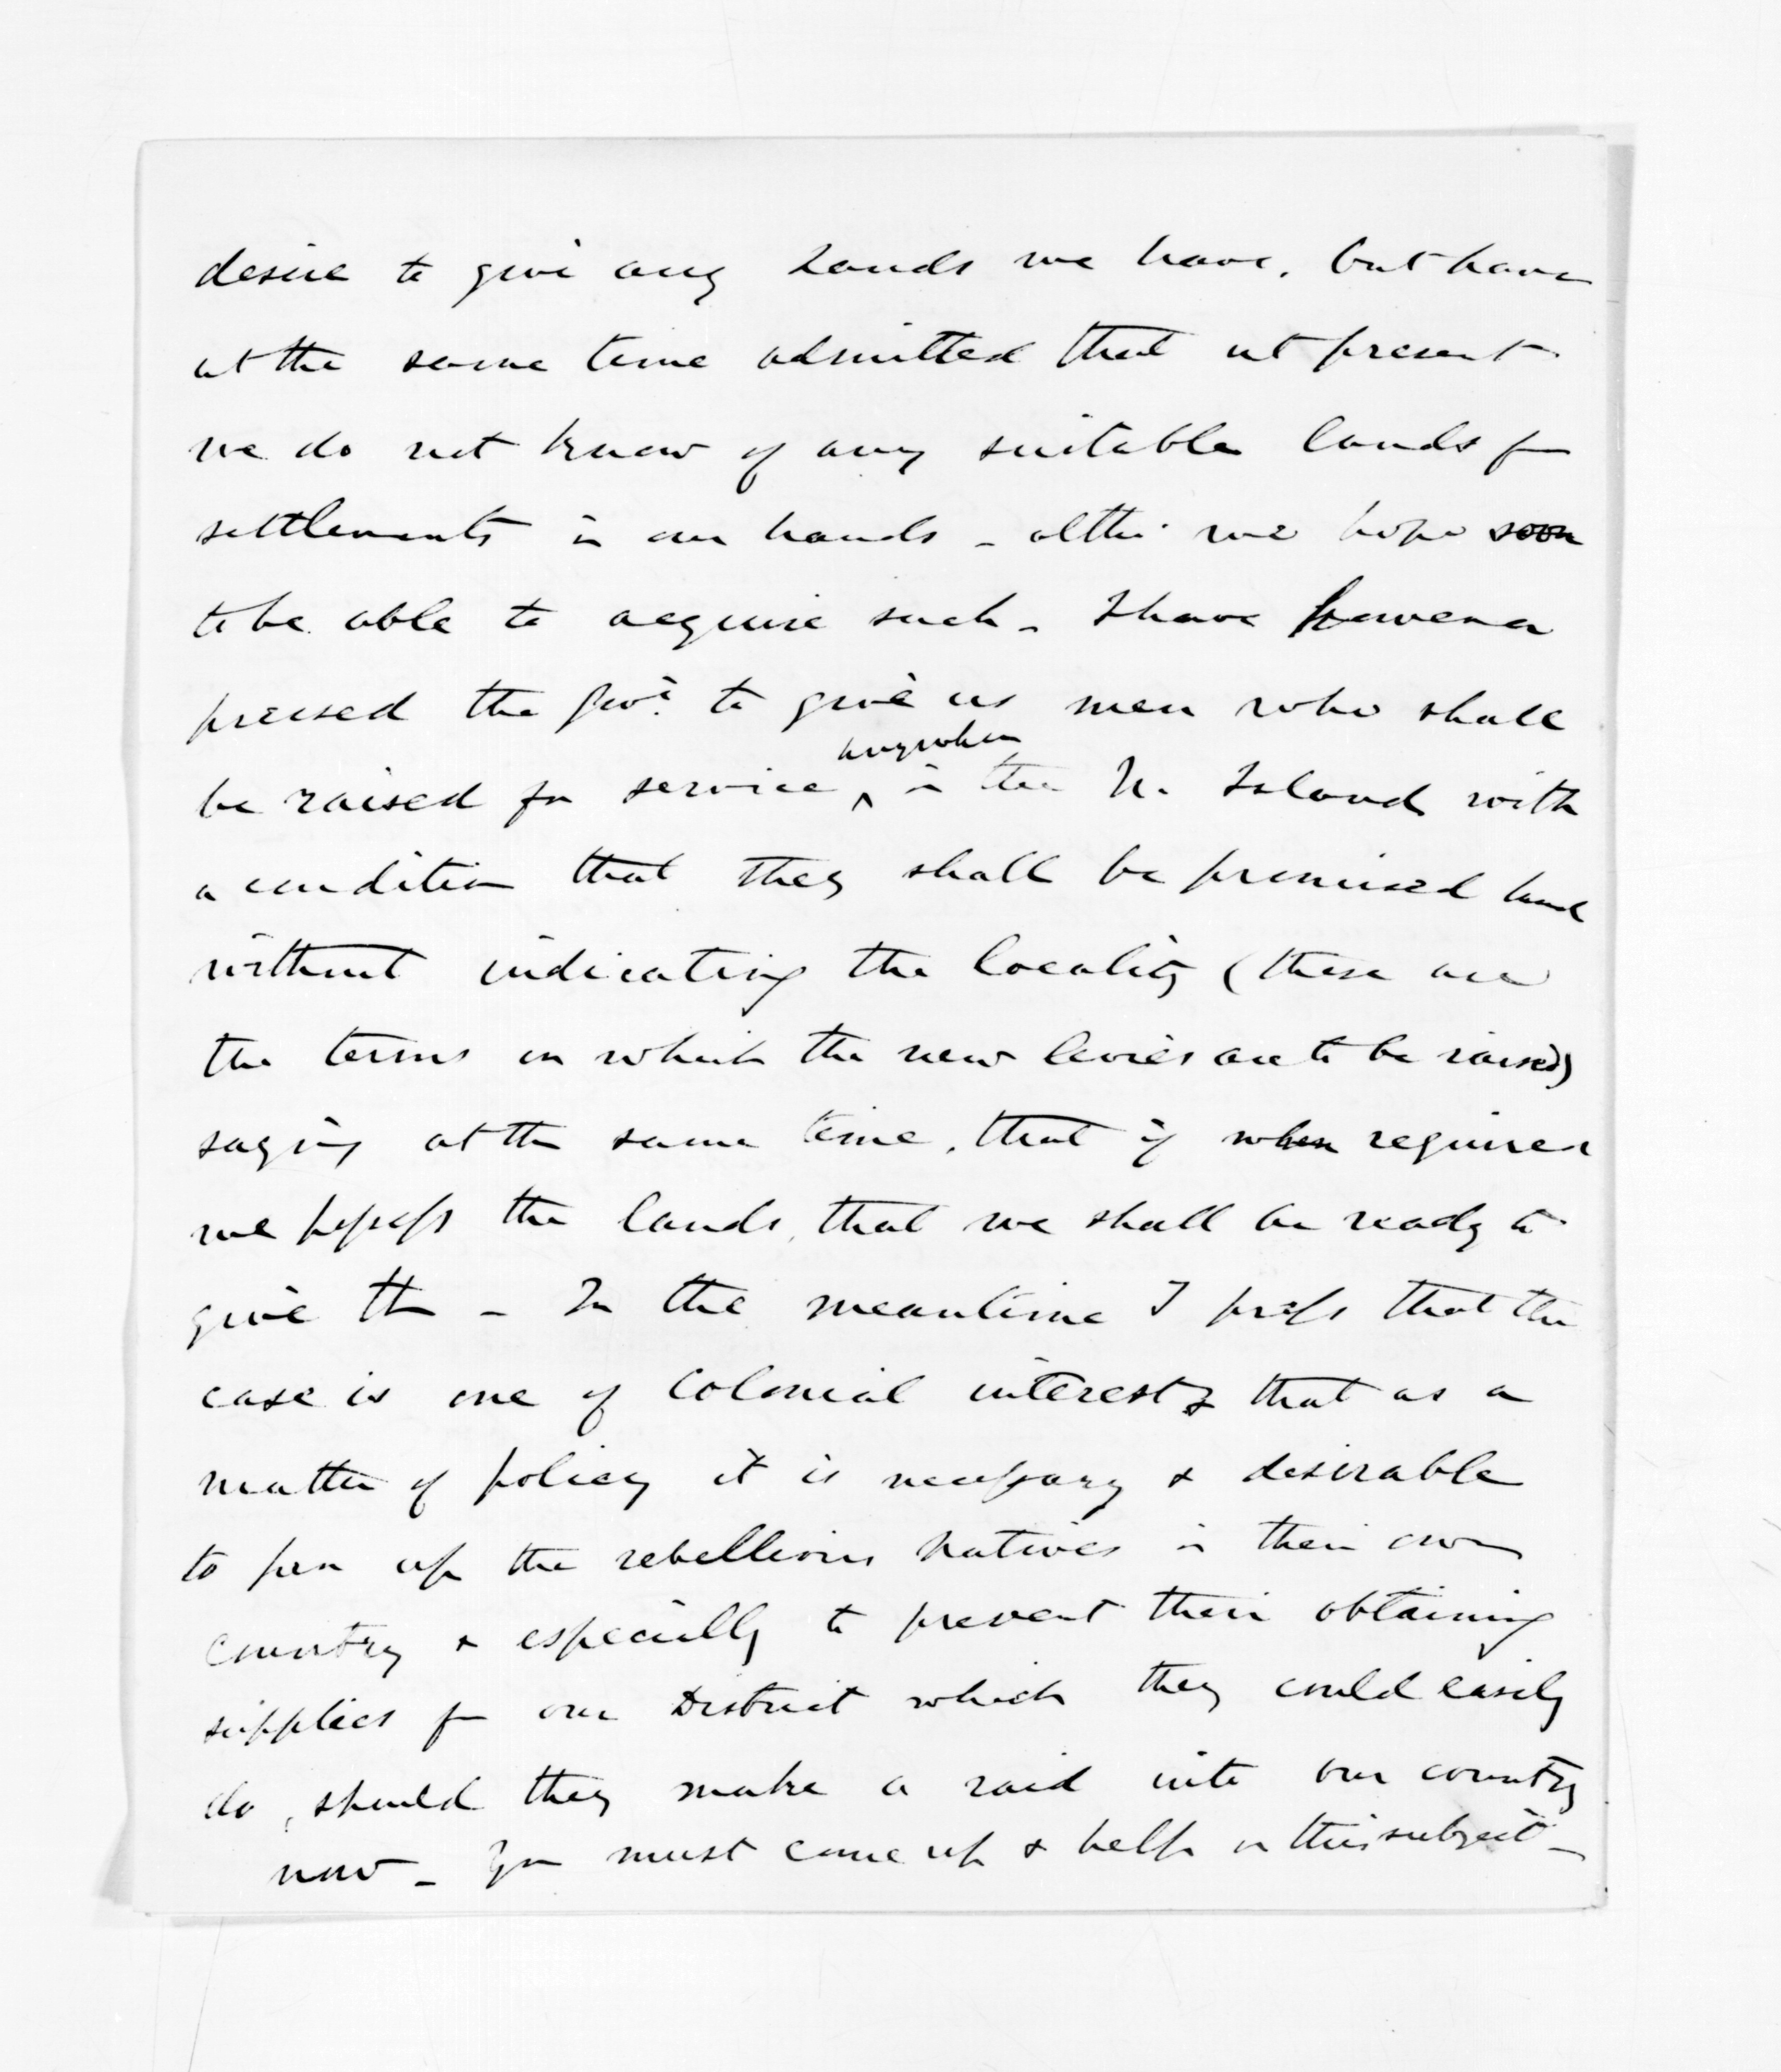 desire to give any Lands we have, but have
at the same time admitted that at present
we do not know of any suitable lands for
settlements in our hands - altho' we hope soon
to be able to acquire such - I have however
pressed the Govt. to give us men who shall
be raised for service anywhere in the N. Island with
a condition that they shall be promised land
without indicating the locality (these are
the terms on which the new levies are to be raised)
saying at the same time, that if when required
we possess the lands, that we shall be ready to
give th - In the meantime I press that the
case is one of Colonial interest & that as a
matter of policy it is necessary & desirable
to pen up the rebellious Natives in their own
country & especially to prevent their obtaining
supplies fm our District which they could easily
do, should they make a raid into our country
now - You must come up & help in this subject -